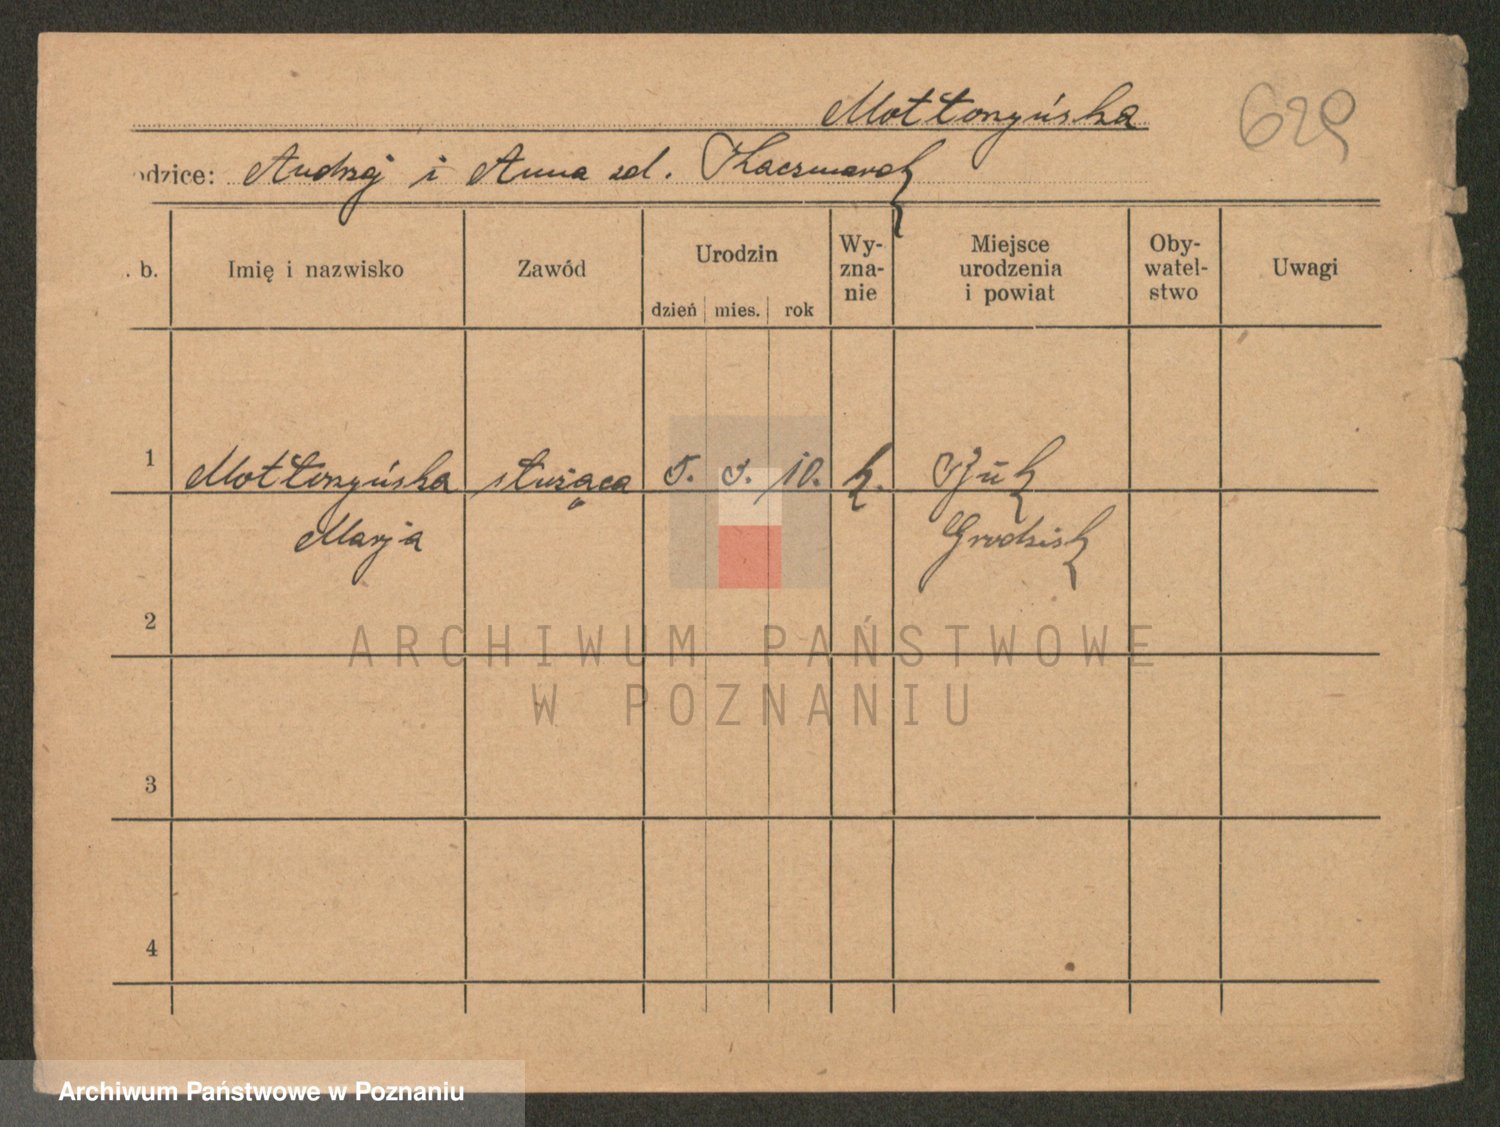 Mottoszyńska
629
odzice: Andrzej i Anna zd. Kaczmarek
. b. Imię i nazwisko Zawód Urodzin dzień mies. rok Wy- zna- nie Miejsce urodzenia i powiat Oby- watel- stwo Uwagi
1 służąca 5. 5. 10. k. Buk
Marja Grodzisk
2
ARCHIWUM PAŃSTWOWE
W POZNANIU
3
4
Archiwum Państwowe w Poznaniu